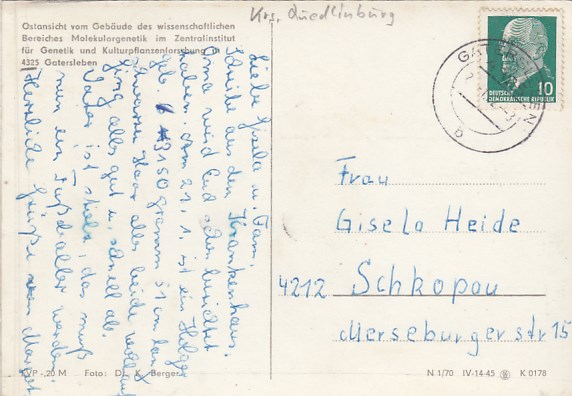 Krs. Quedlinburg
Ostansicht vom Gebäude des wissenschaftlichen
Bereiches Molekulargenetik im Zentralinstitut
für Genetik und Kulturpflanzenforschung in
4325 Gatersleben
10
DEUTSCHE
DEMOKRATISCHE REPUBLIK
Liebe Gisela u. Fam.
Schreibe aus dem Krankenhaus.
Oma wird Euch schon berichtet
haben. Am 21. 1. ist ein Holger
geb. 3150 gramm 51 cm lang
schwarzes Haar alles beide wohlauf
ging alles gut u. schnell ab.
Vater ist stolz, das muß
nun ein Fußballer werden.
Herzliche Grüße von
Frau
Gisela Heide
4212 Schkopau
Merseburger str 15
EVP -.20 M Foto: K. Berger
N 1/70 IV-14-45 K 0178